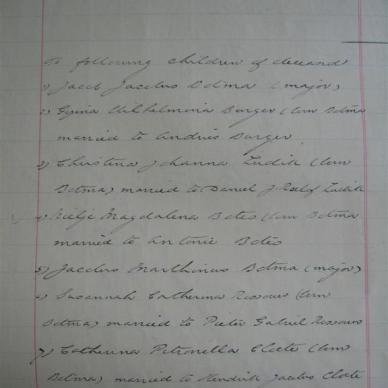 To following children of deceased
1) Jacob Jacobus Botma (major)
2) Wilhelmina Burger (born Botma
married to Andries Burger
3) Christina Johanna Ludik (born
Botma) married to Daniel J Ludik
4) Magdalena Botes (born Botma
married to Antonie Botes
5) Jacobus Marthinus Botma (major)
6) Susannah Catherina (born
Botma) married to Pieter Gabriel
7) Catherina Petronella Cloete (born
Botma) married to Hendrik Jacobus Cloete